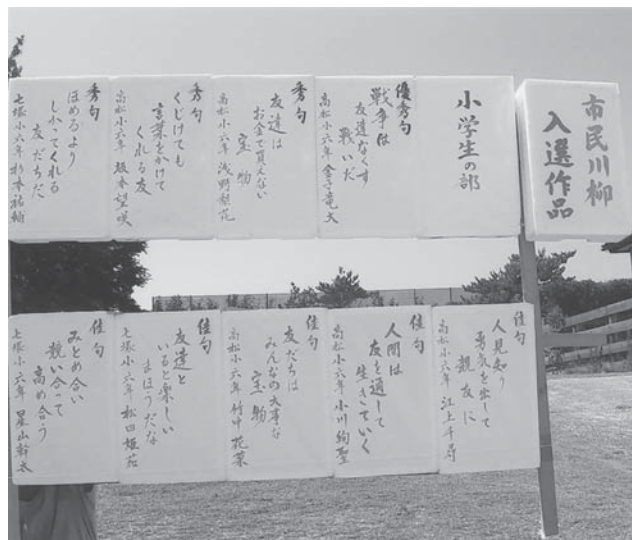 市民川柳
入選作品
小学生の部
優秀句
戦争は
友達なくす
戦いだ
高松小六年 金子竜大
秀句
友達は
お金で買えない
宝物
高松小六年 浅野梨花
秀句
くじけても
言葉をかけて
くれる友
高松小六年 坂本望咲
秀句
ほめるより
しかってくれる
友だちだ
七塚小六年 杉本祐納
佳句
人見知り
勇気を出して
親友に
高松小六年 江上千尋
佳句
人間は
友を通して
生きていく
高松小六年 小川絢聖
佳句
友だちは
みんなの大事な
宝物
高松小六年 竹中花菜
佳句
友達と
いると楽しい
まほうだな
七塚小六年 松田姫花
佳句
みとめ合い
競い合って
高め合う
七塚小六年 星山幹太